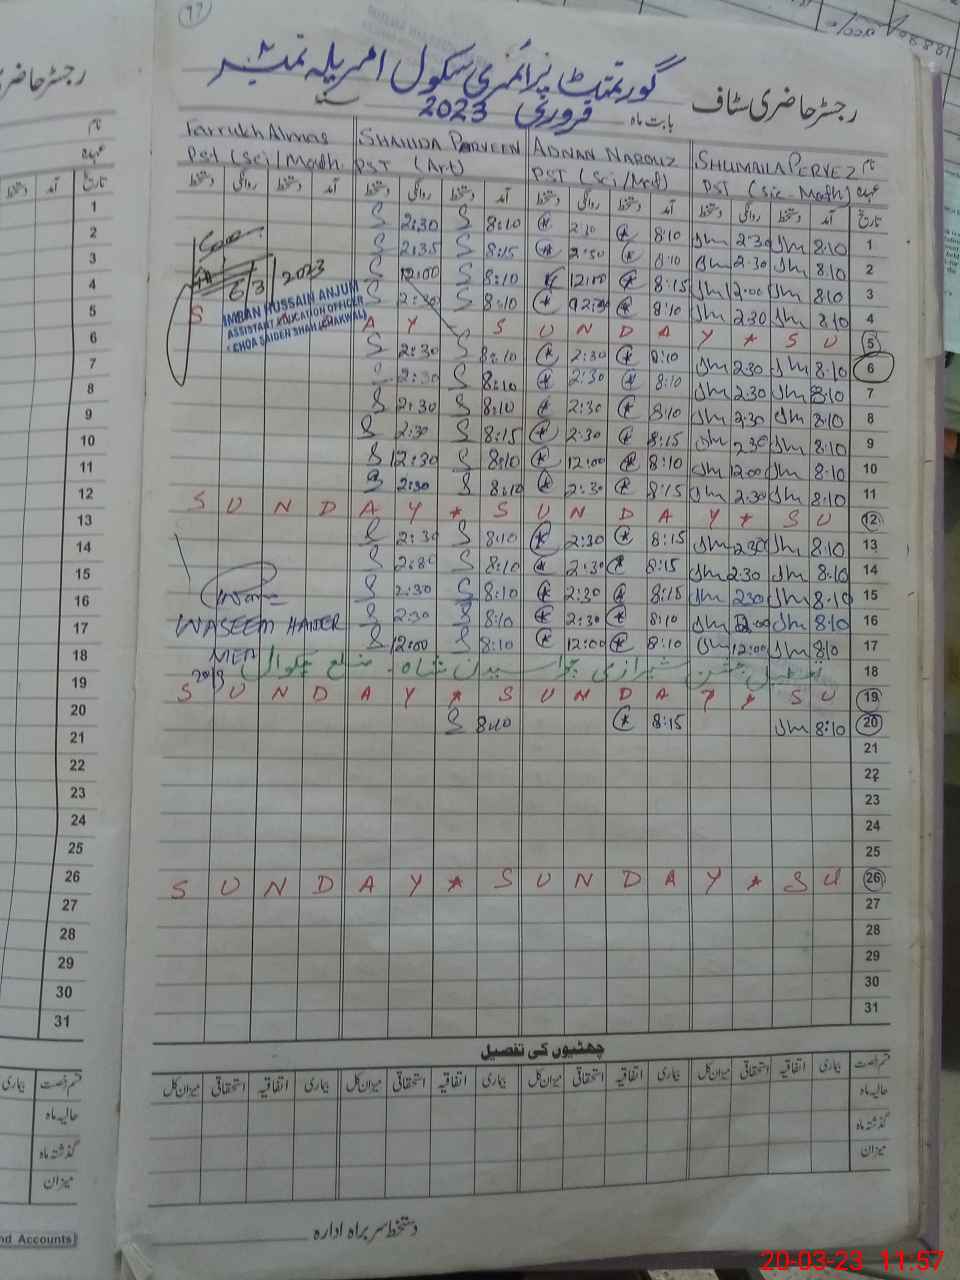 77
رجسٹر حاضری سٹاف
گورنمنٹ پرائمری سکول امریلہ نمبر ۸
بابت ماہ فروری 2023
نام SHUMAILA PERVEZ ADNAN NAROUZ SHAHIDA PARVEEN Farrukh Almas
عہدہ PST (Sic-Math) PST (Sci/Mat) PST (Art) Pst (Sci/Math.
تاریخ آمد دستخط روانگی دستخط آمد دستخط روانگی دستخط آمد دستخط روانگی دستخط آمد دستخط روانگی دستخط
2:30 8:10 8:10 2:30 8:10 1
2:35 8:15 2:30 8:10 2
12:00 8:10 12:00 8:15 12:00 8:10 3
2:30 8:10 8:10 2:30 8:10 4
6/3/2023
IMRAN HUSSAIN ANJUM
ASSISTANT EDUCATION OFFICER
CHOA SAIDEN SHAH (CHAKWAL)
S A Y S U N D A Y * S U 5
2:30 8:10 2:30 8:10 2:30 8:10 6
2:30 8:10 2:30 8:10 2:30 8:10 7
2:30 8:10 2:30 8:10 2:30 8:10 8
2:30 8:15 2:30 8:15 2:30 8:10 9
12:30 8:10 12:00 8:10 12:00 8:10 10
2:30 8:10 2:30 8:15 2:30 8:10 11
S U N D A Y * S U N D A Y * S U 12
2:30 8:10 2:30 8:15 2:30 8:10 13
8:10 2:30 8:15 2:30 8:10 14
2:30 8:10 2:30 8:15 2:30 8:10 15
2:30 8:10 2:30 8:10 8:10 16
WASEEM HAIDER 12:00 8:10 12:00 8:10 12:00 8:10 17
MEA
تعطیل جشن شیرازی چواسیدن شاہ۔ ضلع چکوال 18
S U N D A Y * S U N D A Y * S U 19
8:10 8:15 8:10 20
21
22
23
24
25
S U N D A Y * S U N D A Y * S U 26
27
28
29
30
31
چھٹیوں کی تفصیل
قسم رخصت بیماری اتفاقیہ استحقاقی میزان کل بیماری اتفاقیہ استحقاقی میزان کل بیماری اتفاقیہ استحقاقی میزان کل بیماری اتفاقیہ استحقاقی میزان کل
حالیہ ماہ
گذشتہ ماہ
میزان
دستخط سربراہ ادارہ
رجسٹر حاضری
نام
عہدہ
تاریخ آمد دستخط
1
2
3
4
5
6
7
8
9
10
11
12
13
14
15
16
17
18
19
20
21
22
23
24
25
26
27
28
29
30
31
قسم رخصت بیماری
حالیہ ماہ
گذشتہ ماہ
میزان
nd Accounts
20-03-23 11:57